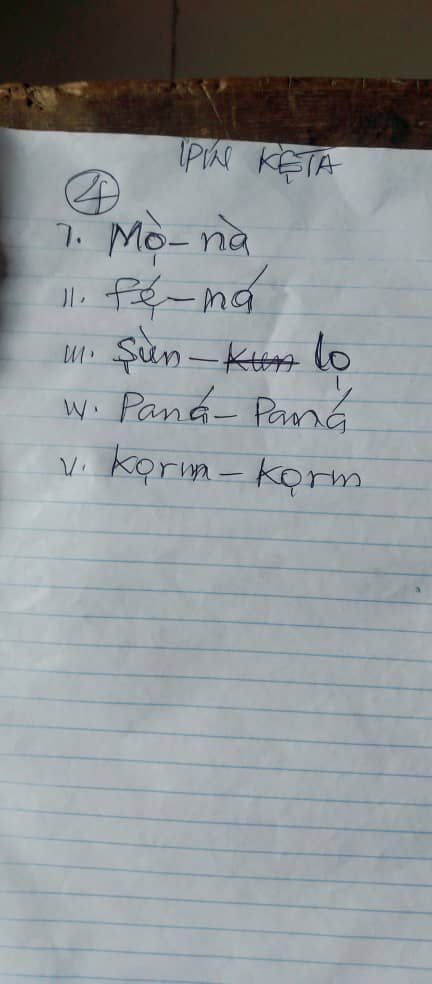 IPÍN KẸ̀TA
4
1. Mọ̀ - nà
11. fẹ́ - ná
111. Ṣùn - lọ
IV. Paná - Paná
V. kọrin - kọrin